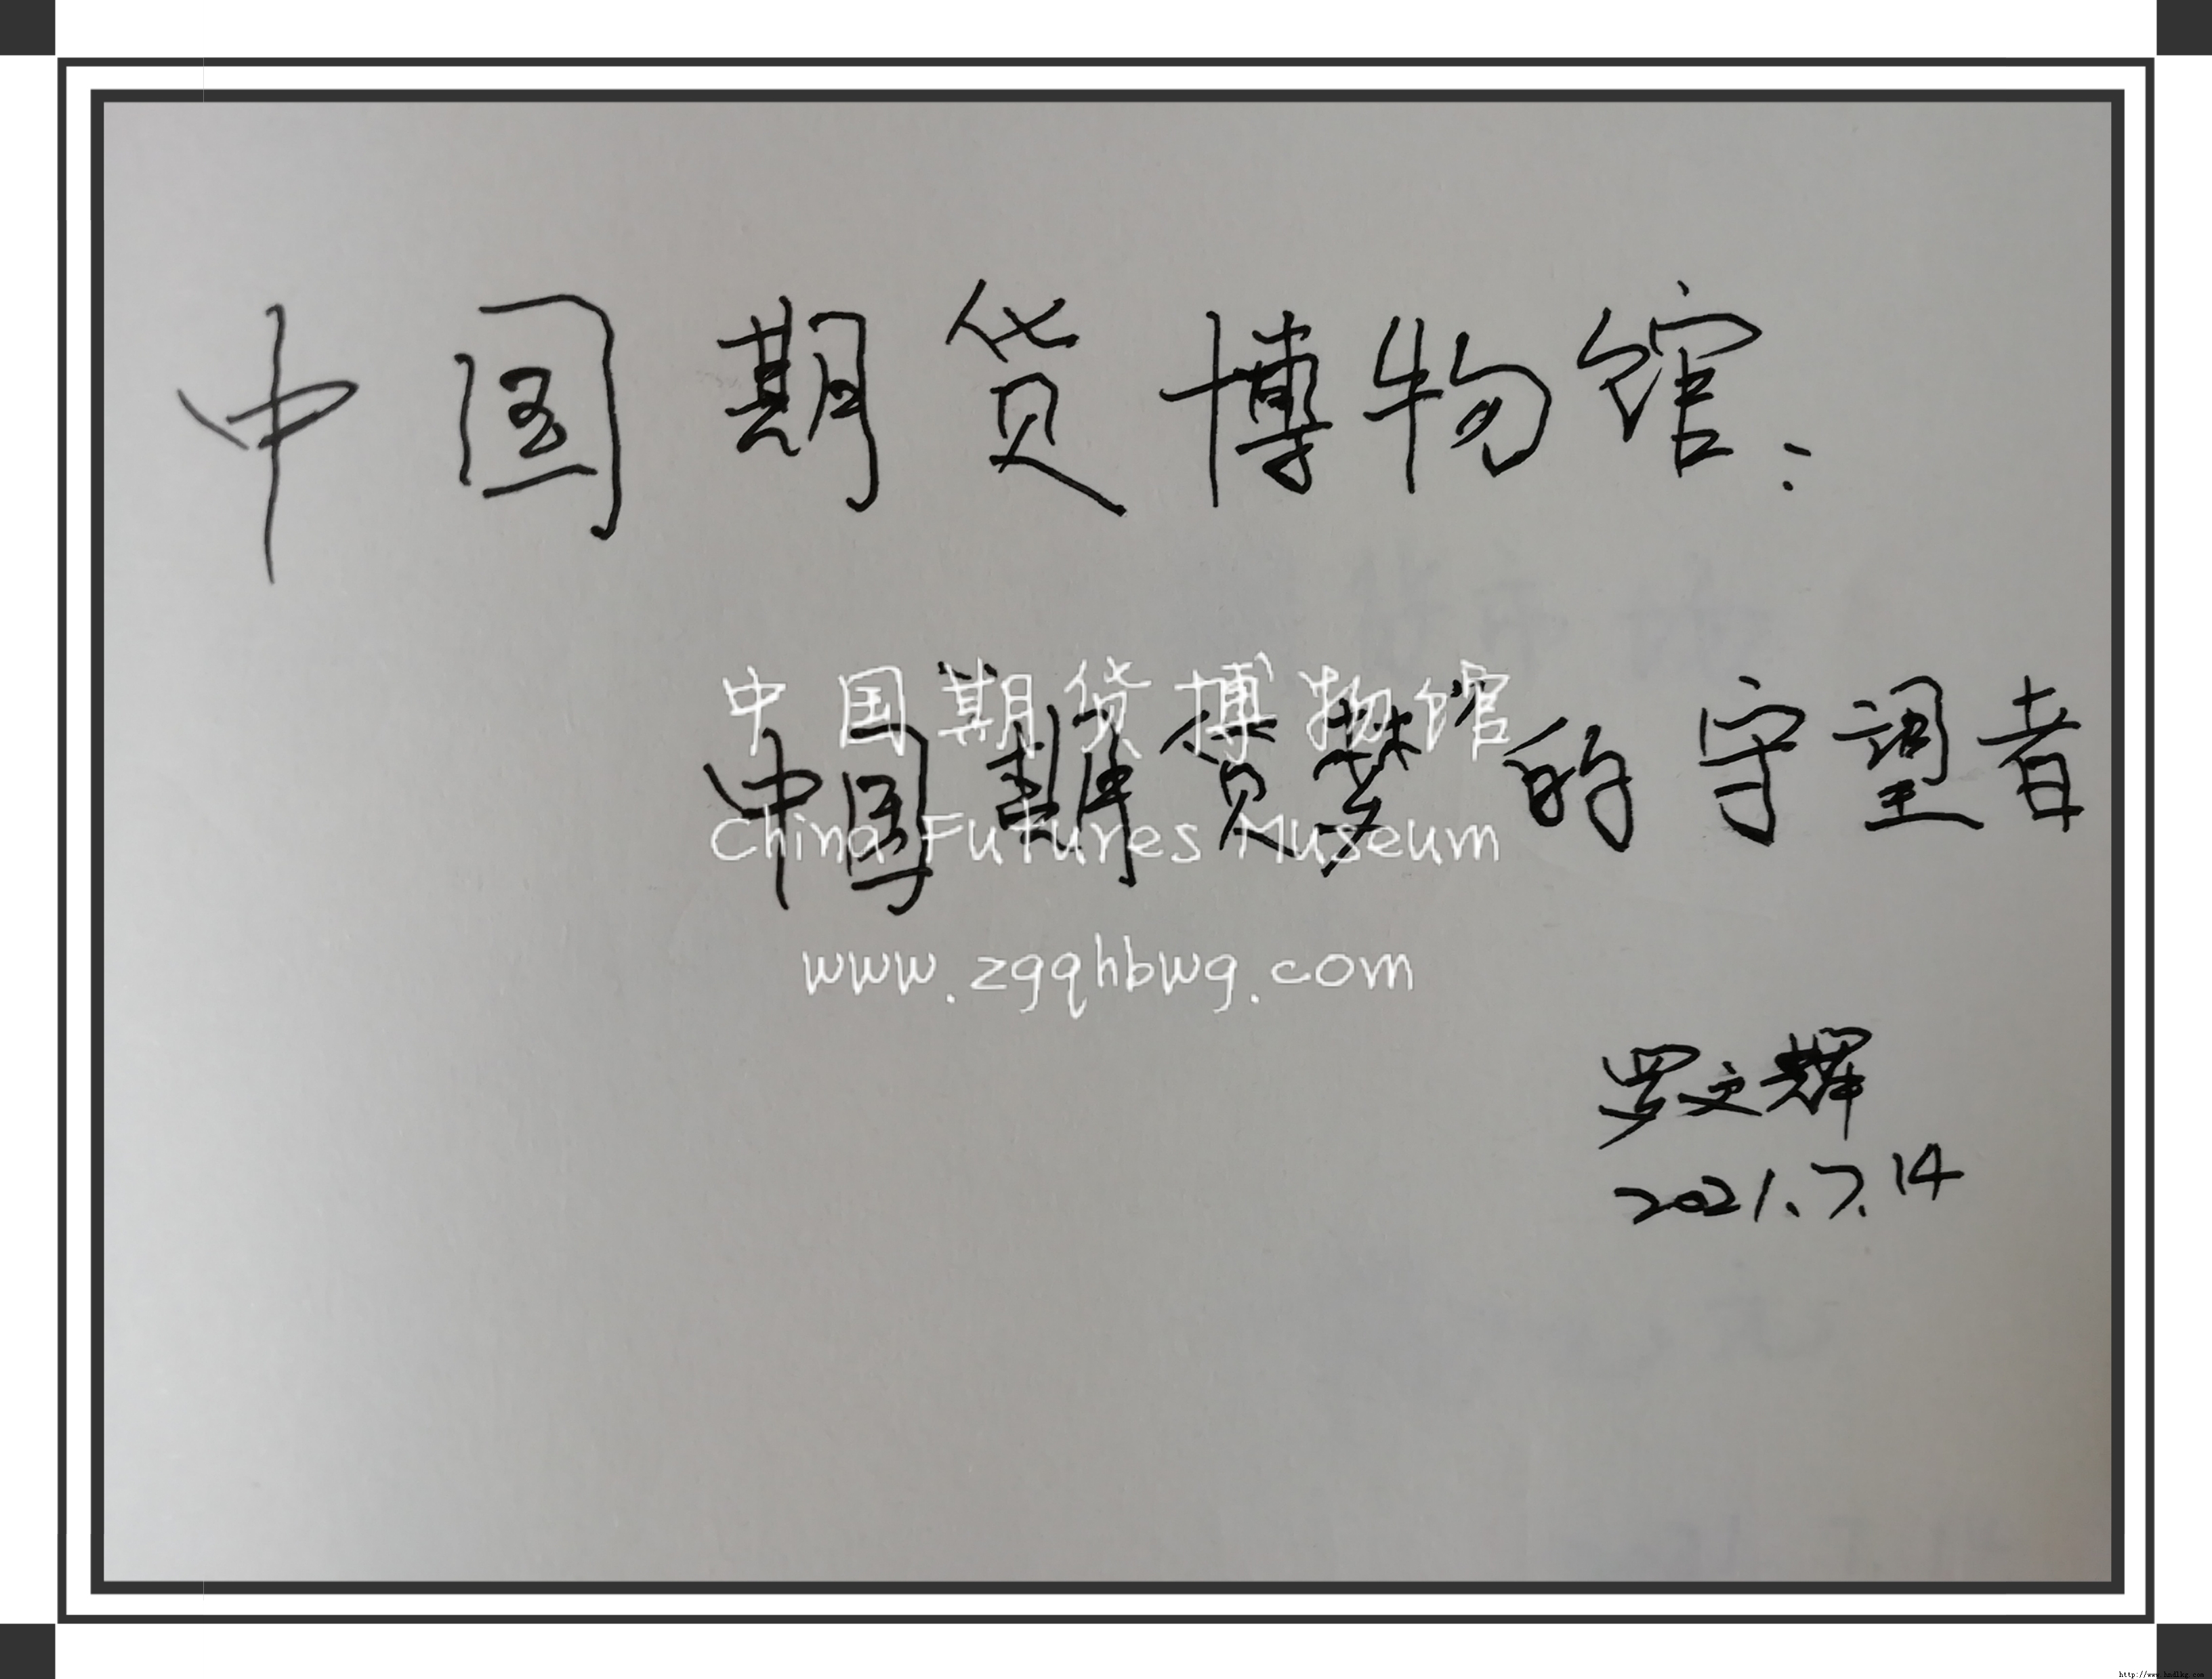 中国期货博物馆：
中国期货博物馆
中国期货梦的守望者
China Futures Museum
www.zgqhbwg.com
罗文辉
2021.7.14